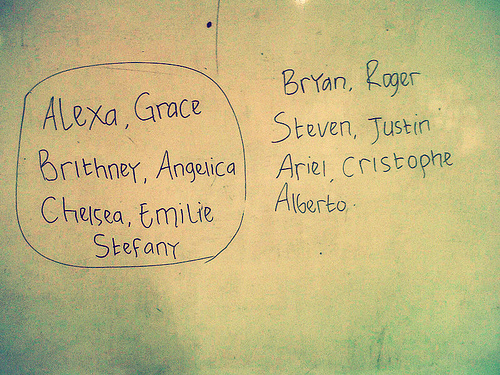 Alexa, Grace
Brithney, Angelica
Chelsea, Emilie
Stefany
Bryan, Roger
Steven, Justin
Ariel, Cristophe
Alberto.